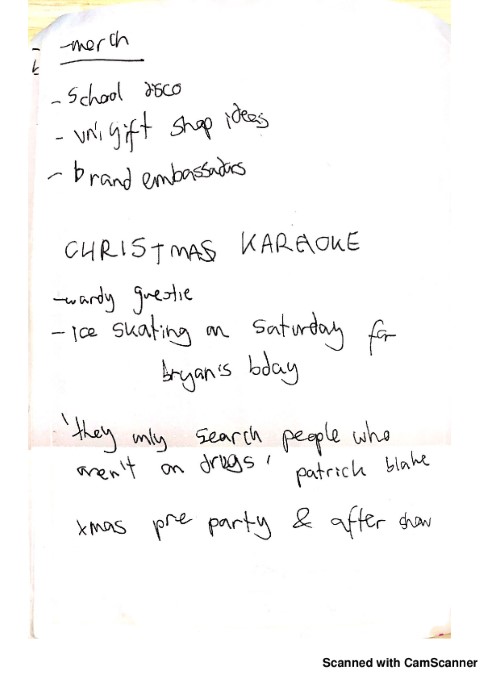 - merch
- School disco
- uni gift shop ideas
- brand embassadors
CHRISTMAS KARAOKE
- wardy guestie
- ice skating on Saturday for
bryan's bday
'they only search people who
aren't on drugs' patrick blake
xmas pre party & after show
Scanned with CamScanner